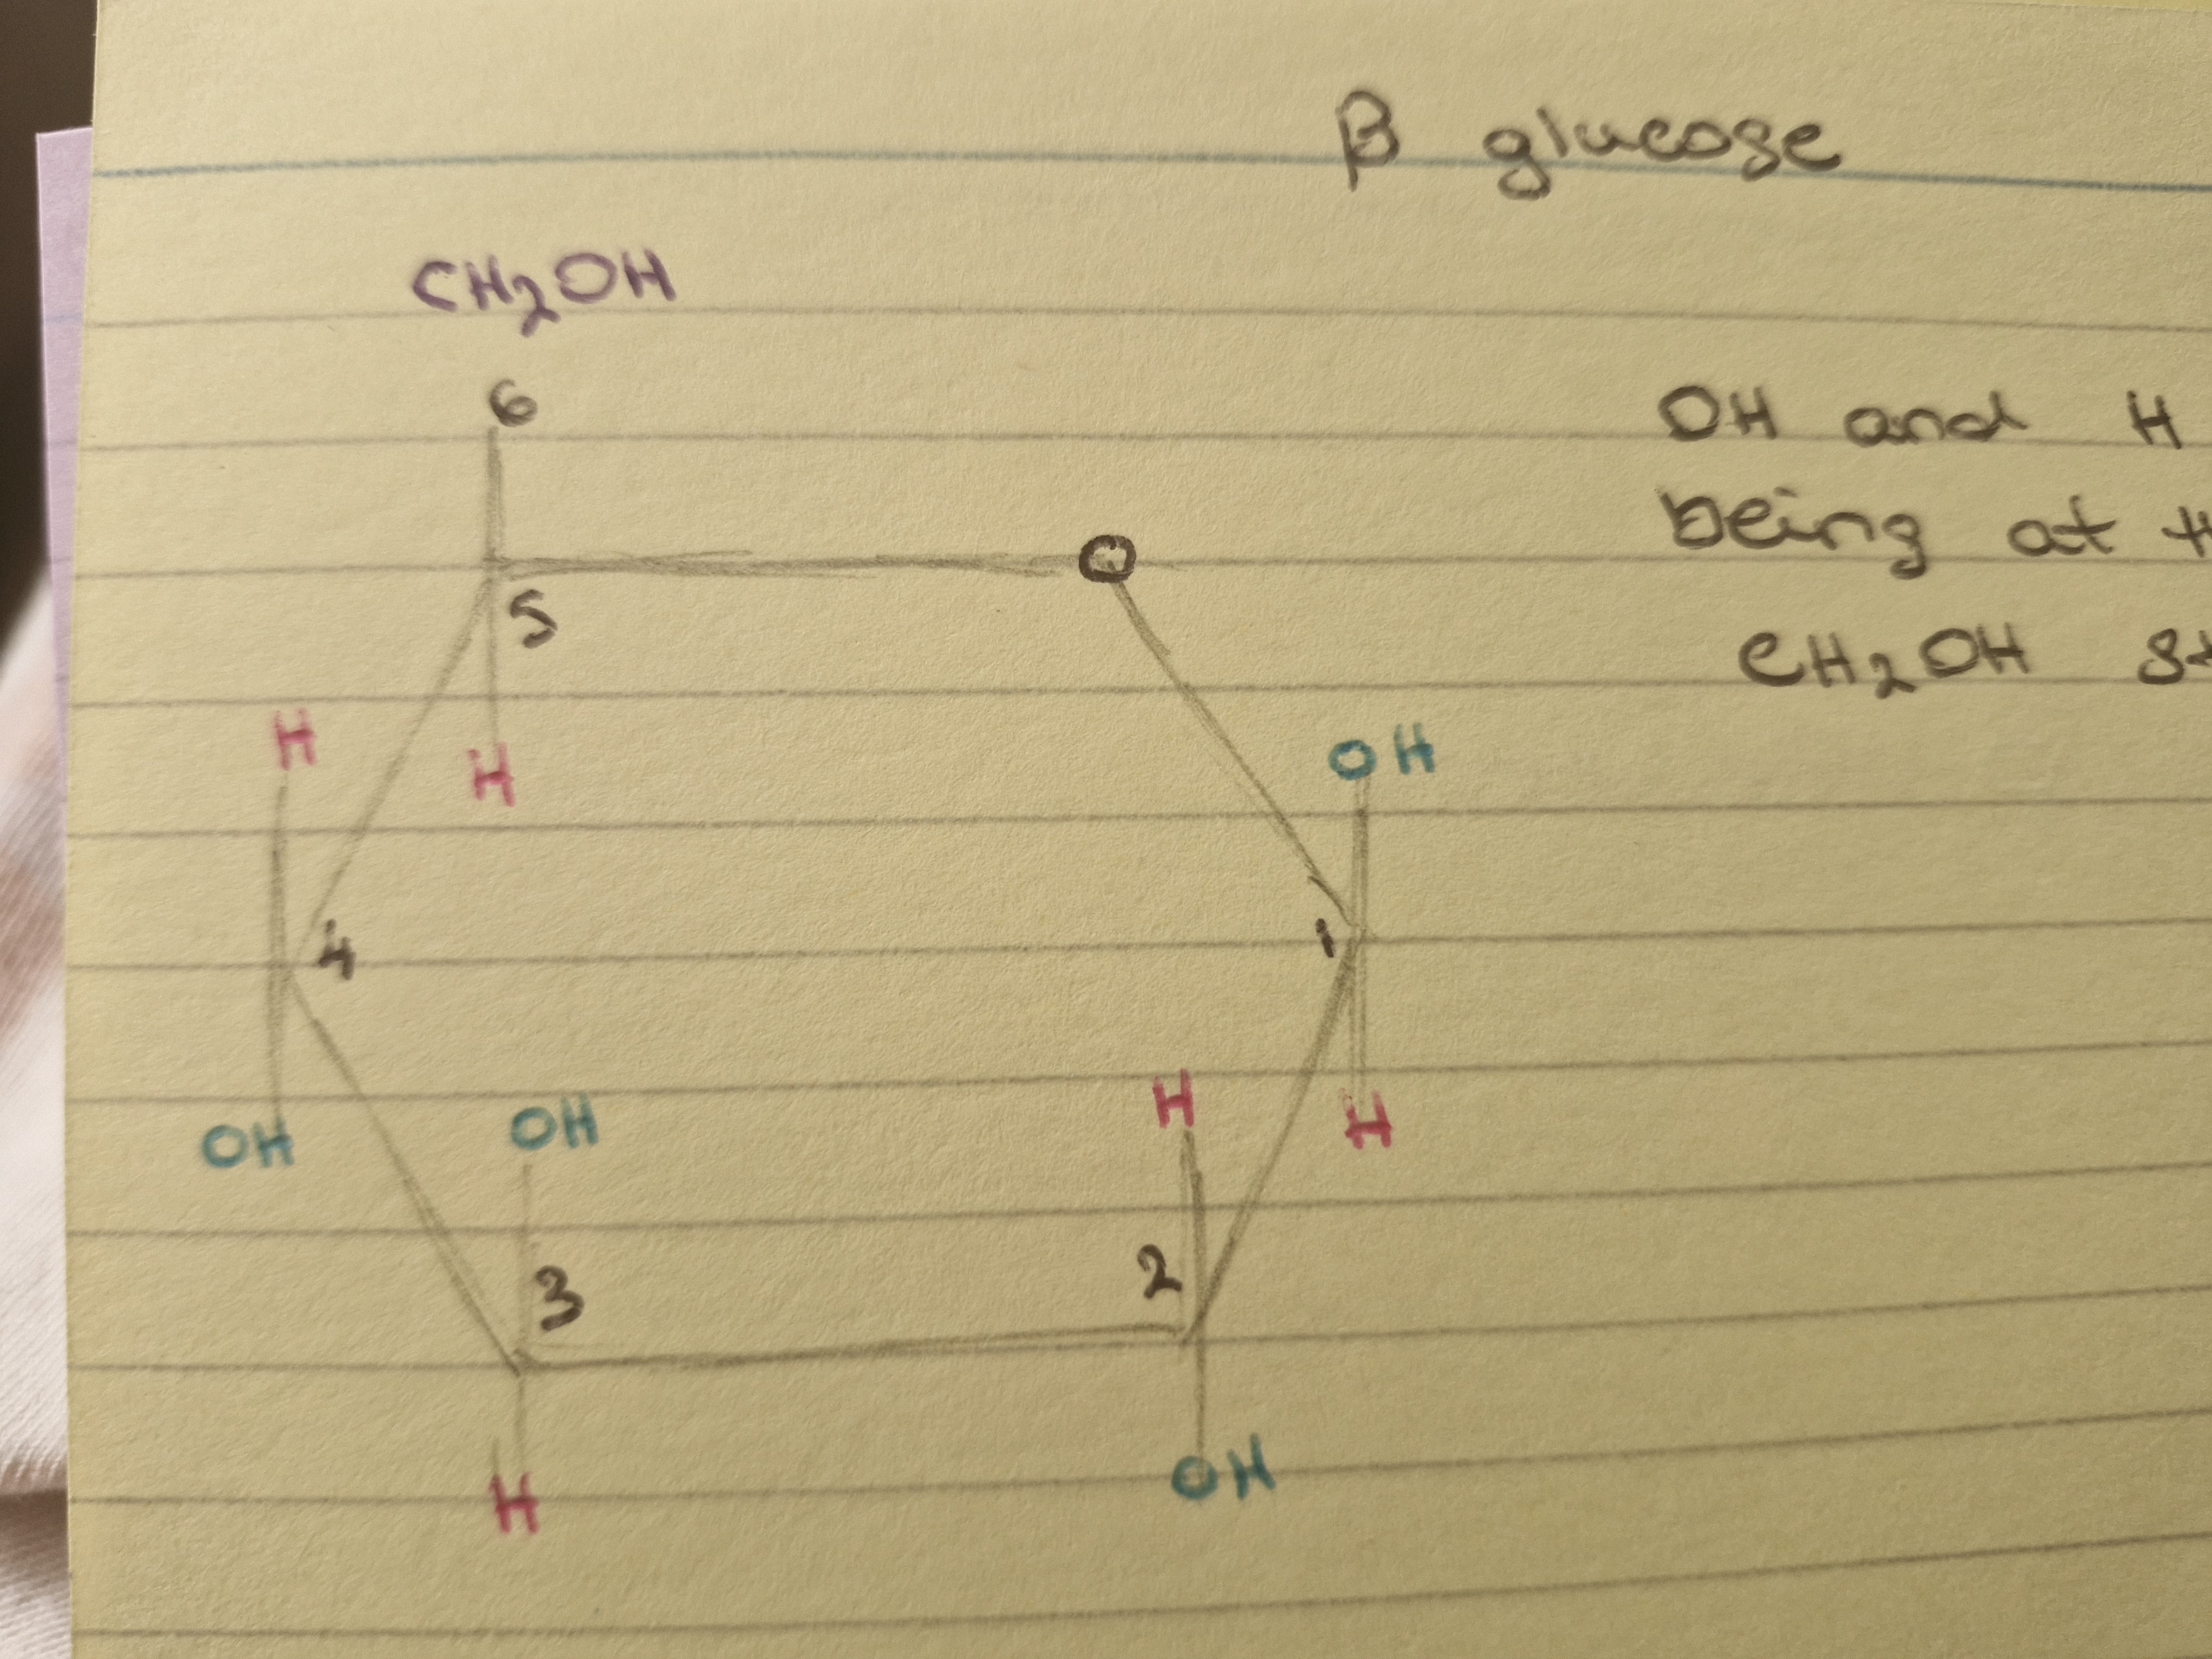 β glucose
CH2OH
6
OH and H
being at
O
5
CH2OH
H
OH
H
4
1
H
OH
OH
H
3
2
H
OH